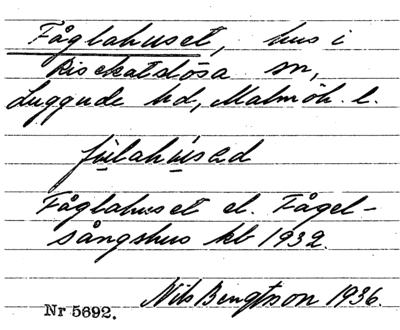 Fåglahuset, hus i
Risekatslösa sn,
Luggude hd, Malmöh. l.
fúlahúsəd
Fåglahuset el. Fågel-
sångshus kb 1932.
Nils Bengtson 1936.
Nr 5692.